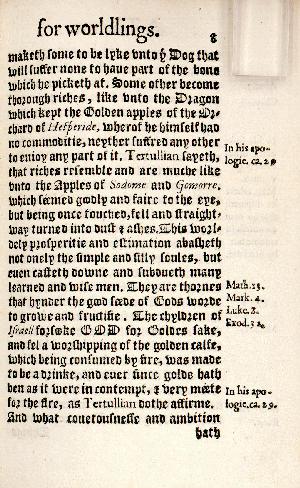 for worldlings.
8
maketh some to be lyke vnto ẏ Dog that
will suffer none to haue part of the bone
which he picketh at. Some other become
thorough riches, like vnto the Dragon
which kept the Golden apples of the Or-
chard of Hesperide, wherof he himself had
no commoditie, neyther suffred any other
to enioy any part of it. Tertullian sayeth,
that riches resemble and are muche like
vnto the Apples of Sodome and Gomorre,
which séemed goodly and faire to the eye,
but being once touched, fell and straight-
way turned into dust & ashes. This worl-
dely prosperitie and estimation abasheth
not onely the simple and silly soules, but
euen casteth downe and subdueth many
learned and wise men. They are thornes
that hynder the good séede of Gods worde
to growe and fructifie. The chyldren of
Israell forsooke GOD for Goldes sake,
and fel a worshipping of the golden calfe,
which being consumed by fire, was made
to be a drinke, and euer since golde hath
ben as it were in contempt, & very méete
for the fire, as Tertullian dothe affirme.
And what couetousnesse and ambition
hath
In his apo-
logie. ca. 29
Math. 13.
Mark. 4.
Luke. 8.
Exod. 32.
In his apo-
logie. ca. 29.